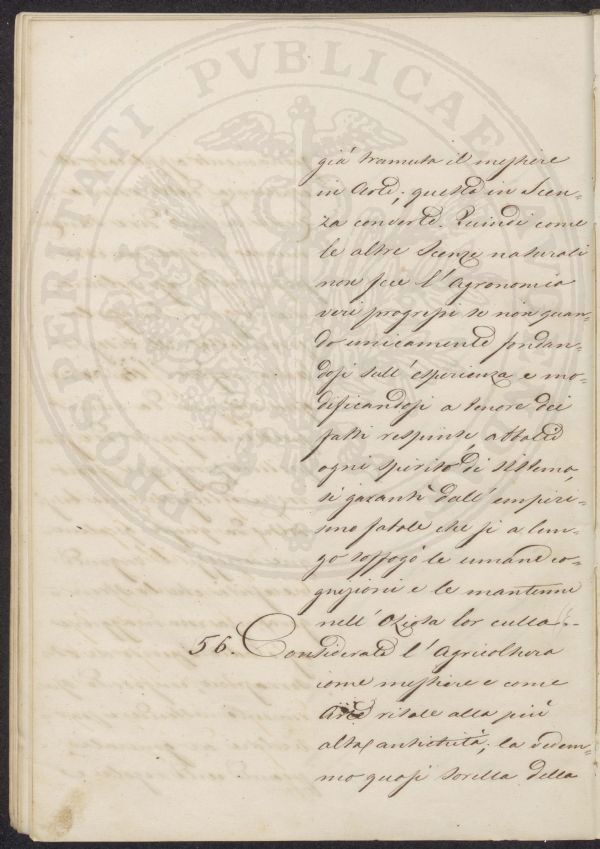 PROSPERITATI PVBLICAE
già tramuta il mestiere
in Arte, questa in Scien-
za converte. Quindi come
le altre Scienze naturali
non fece l'Agronomia
veri progressi se non quan-
do unicamente fondan-
dosi sull'esperienza e mo-
dificandosi a tenore dei
fatti respinse affatto
ogni spirito di sistema,
si garantì dall'empiri-
smo fatale che sì a lun-
go soffogò le umane co-
gnizioni e le mantenne
nell'oziosa lor culla.-
56. Considerate l'Agricoltura
come mestiere e come
Arte risale alla più
alta antichità; la vedem-
mo quasi sorella della